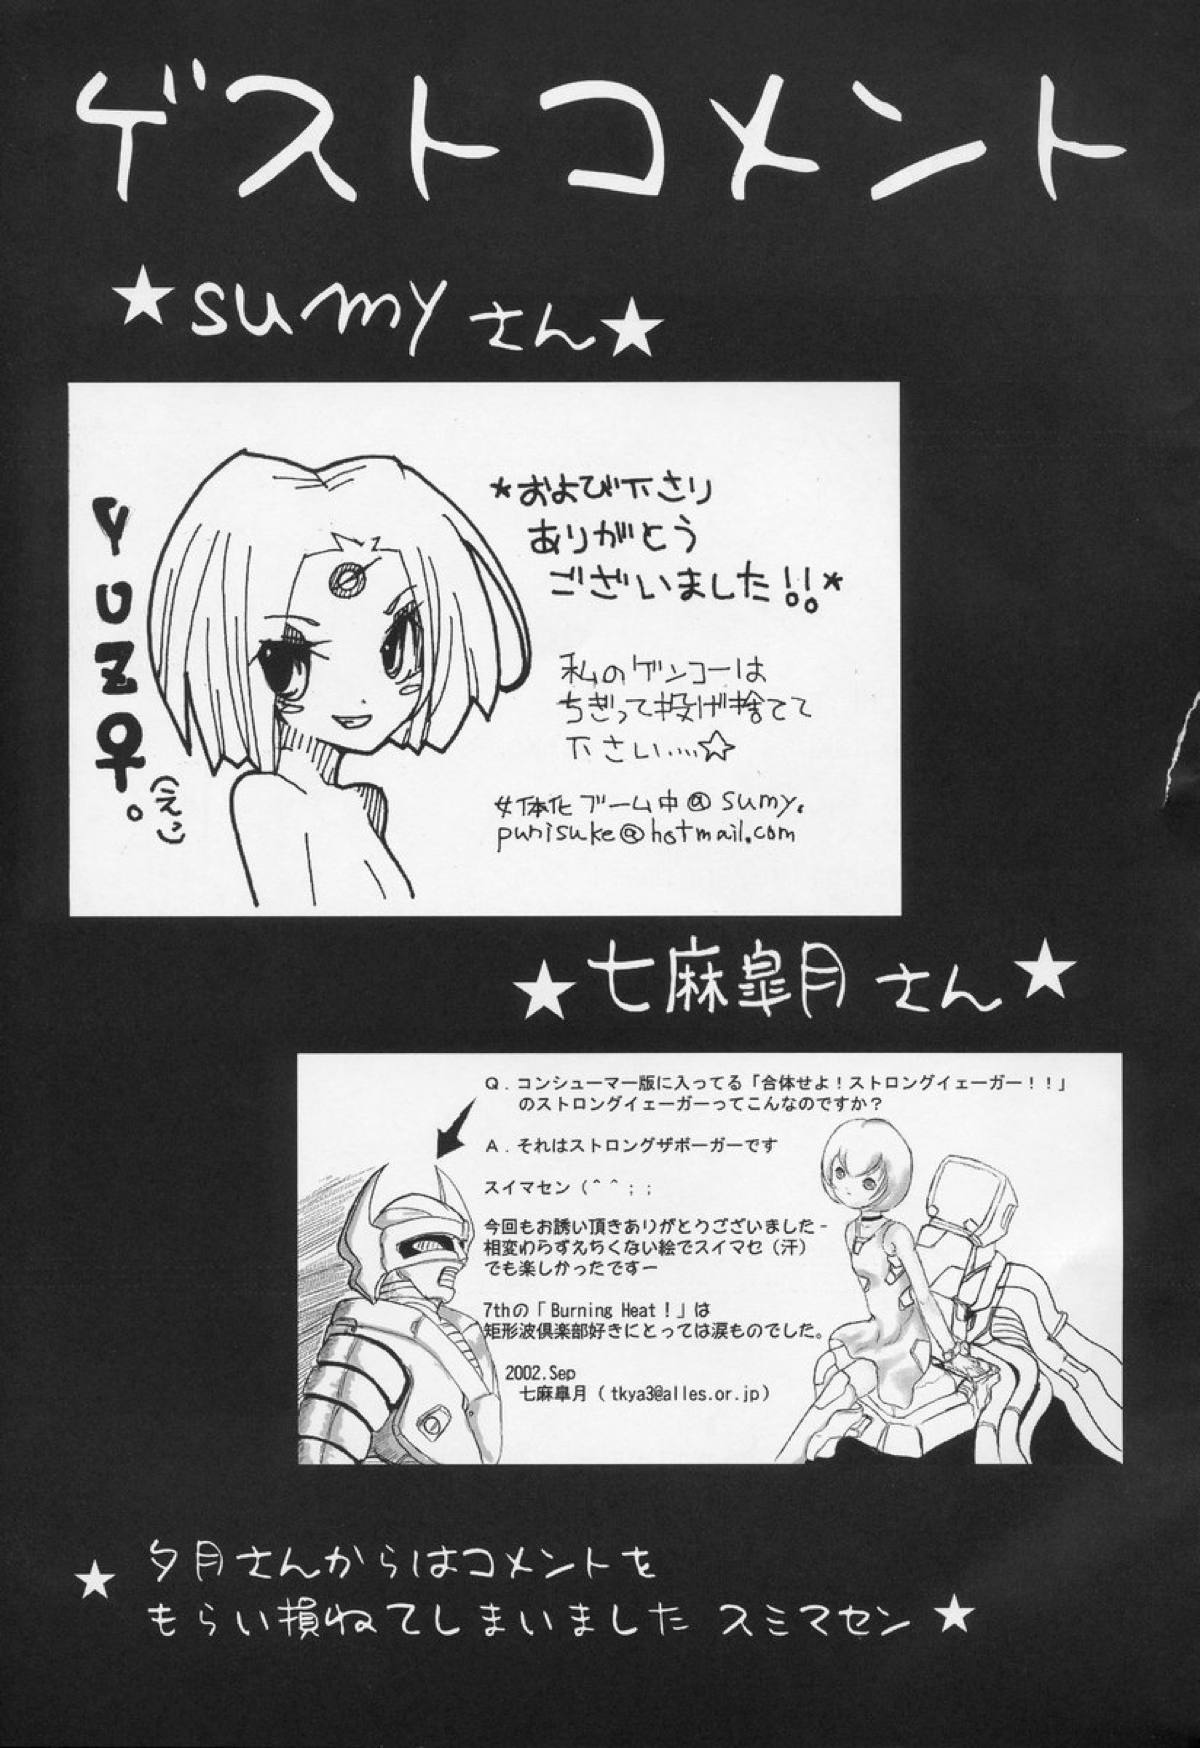 ゲストコメント
★sumyさん★
YUZ♀。
(えっ)
*および下さり
ありがとう
ございました!!*
私のゲンコーは
ちぎって投げ捨てて
下さい....☆
女体化ブーム中@sumy.
punisuke@hotmail.com
★七麻皐月さん★
Q.コンシューマー版に入ってる「合体せよ!ストロングイェーガー!!」
のストロングイェーガーってこんなのですか?
A.それはストロングザボーガーです
スイマセン(^^;;
今回もお誘い頂きありがとうございました-
相変わらずえちくない絵でスイマセ(汗)
でも楽しかったですー
7thの「Burning Heat!」は
矩形波倶楽部好きにとっては涙ものでした。
2002.Sep
七麻皐月(tkya3@alles.or.jp)
★夕月さんからはコメントを
もらい損ねてしまいました スミマセン★